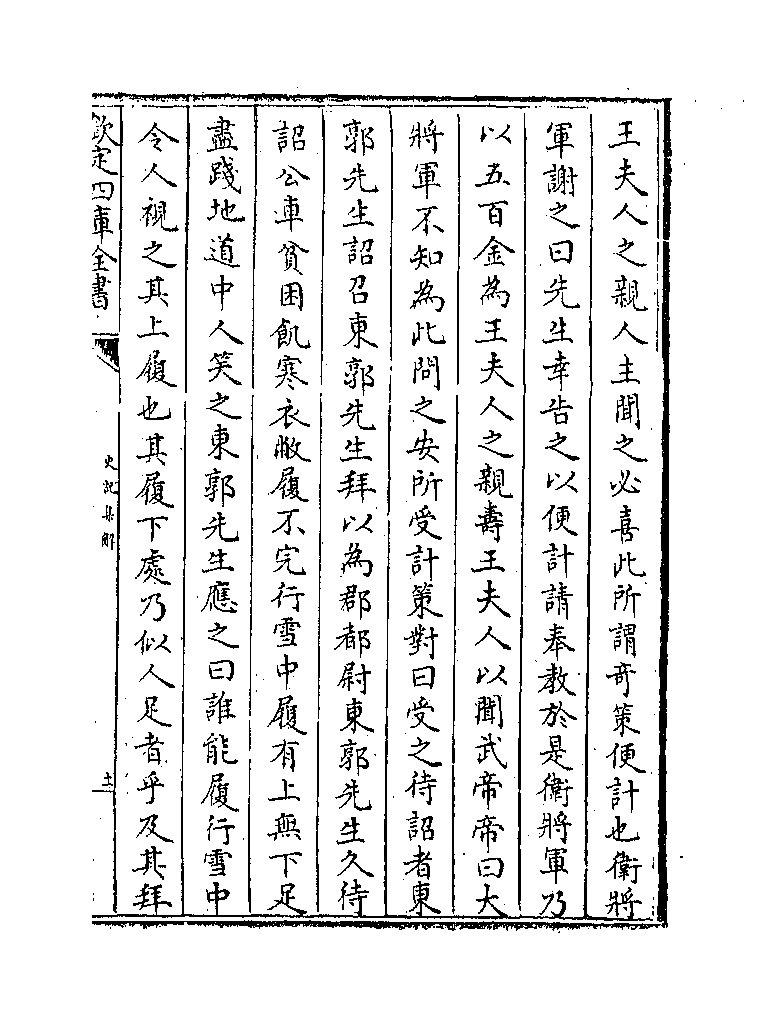 王夫人之親人主聞之必喜此所謂竒策便計也衛將
軍謝之曰先生幸告之以便計請奉教於是衛將軍乃
以五百金為王夫人之親壽王夫人以聞武帝帝曰大
將軍不知為此問之安所受計策對曰受之待詔者東
郭先生詔召東郭先生拜以為郡都尉東郭先生久待
詔公車貧困飢寒衣敝履不完行雪中履有上無下足
盡踐地道中人笑之東郭先生應之曰誰能履行雪中
令人視之其上履也其履下處乃似人足者乎及其拜
欽定四庫全書
史記集解
十一